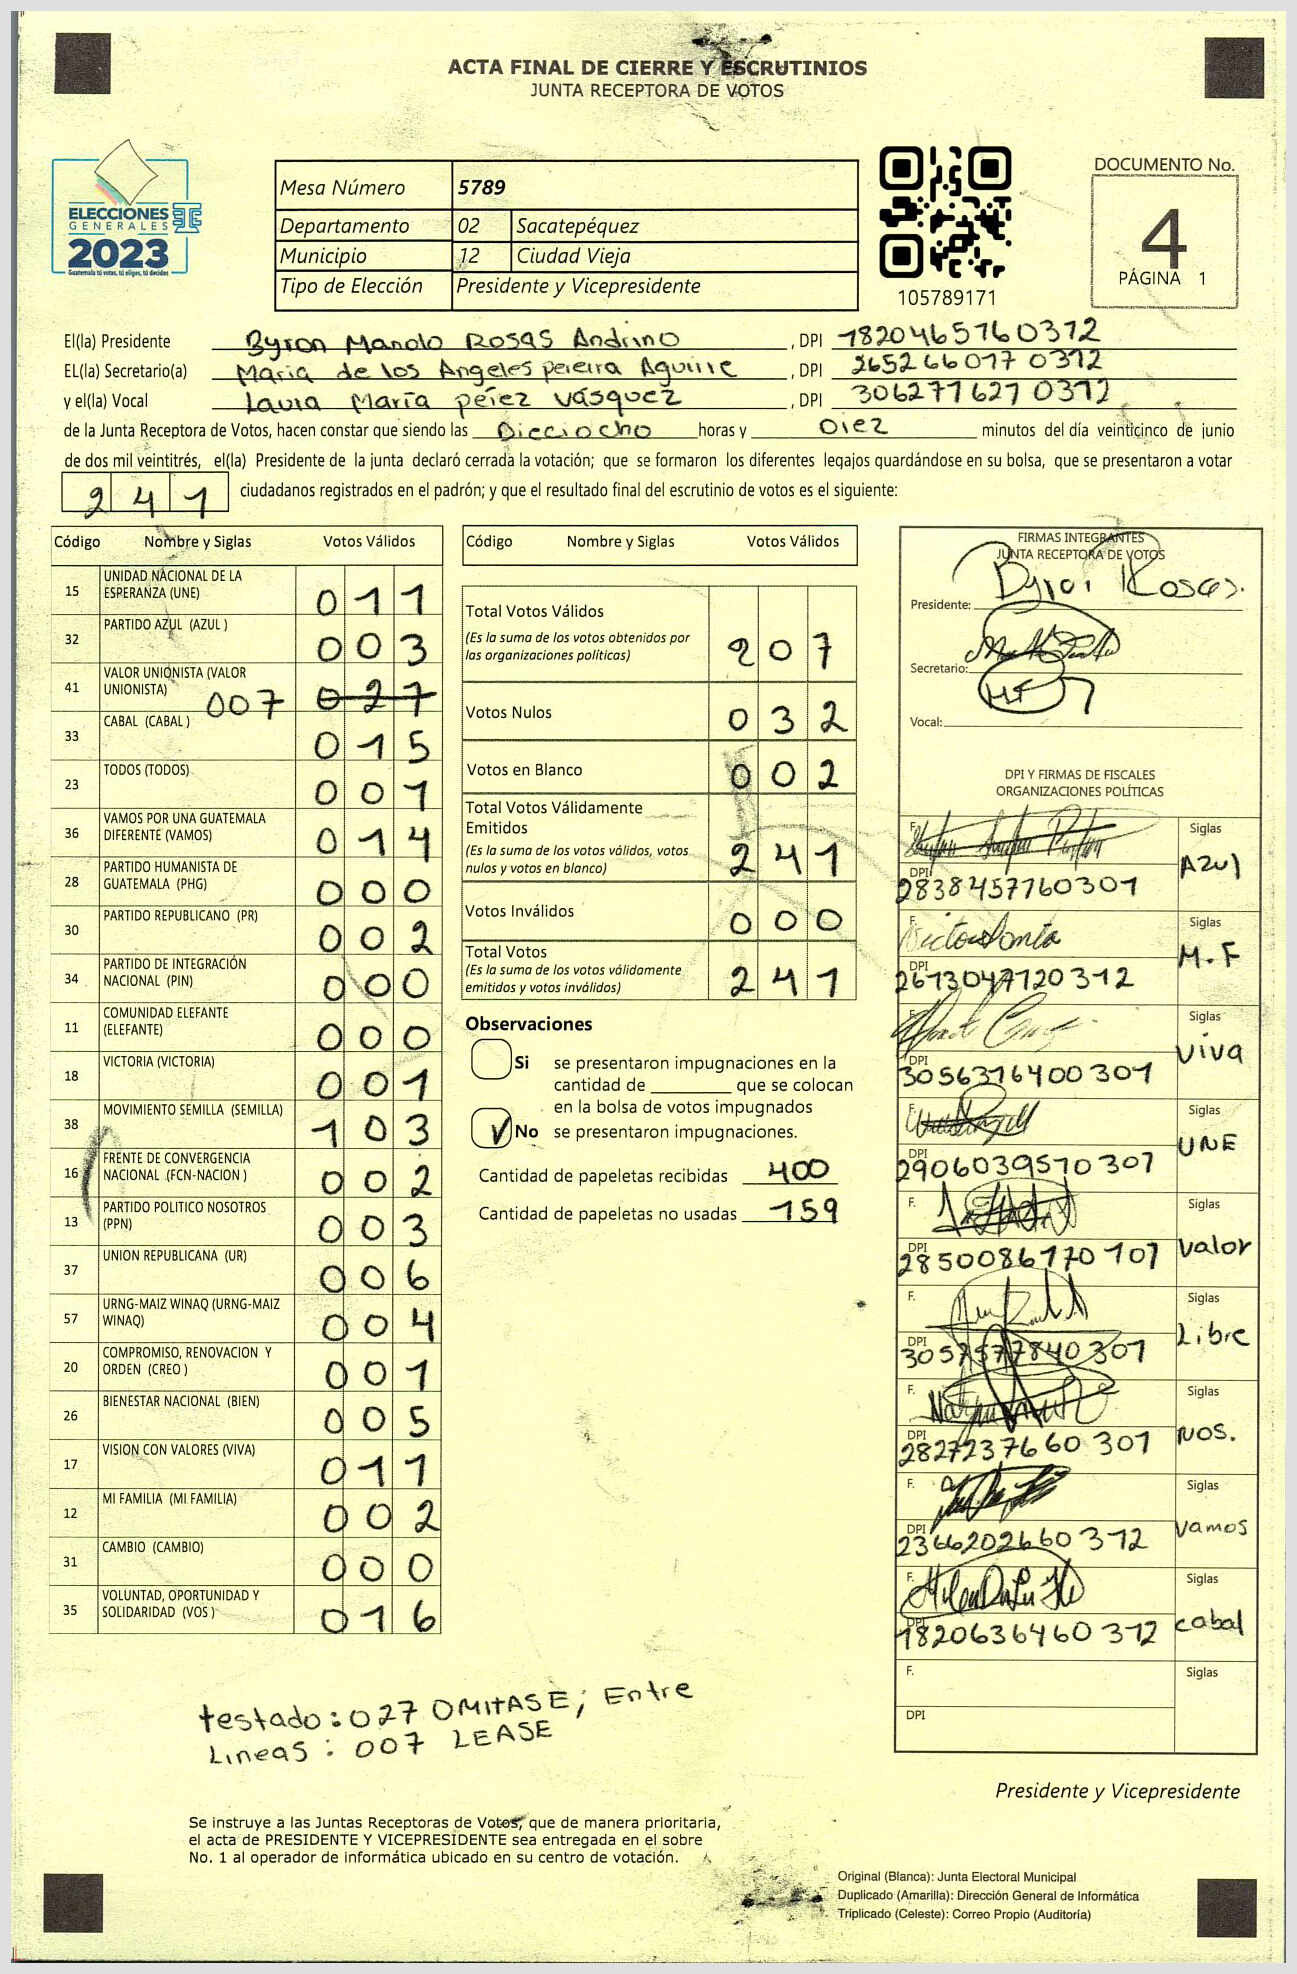 ACTA FINAL DE CIERRE Y ESCRUTINIOS
JUNTA RECEPTORA DE VOTOS
ELECCIONES
GENERALES
2023
Guatemala tú votas, tú eliges, tú decides
Mesa Número 5789
Departamento 02 Sacatepéquez
Municipio 12 Ciudad Vieja
Tipo de Elección Presidente y Vicepresidente
105789171
DOCUMENTO No.
4
PÁGINA 1
El(la) Presidente Byron Manolo Rosas Andrino, DPI 1820465760312
EL(la) Secretario(a) Maria de los Angeles pereira Aguirre, DPI 2652660170312
y el(la) Vocal Laura María pérez vásquez, DPI 3062771627 0312
de la Junta Receptora de Votos, hacen constar que siendo las Dieciocho horas y Diez minutos del día veinticinco de junio
de dos mil veintitrés, el(la) Presidente de la junta declaró cerrada la votación; que se formaron los diferentes legajos guardándose en su bolsa, que se presentaron a votar
241 ciudadanos registrados en el padrón; y que el resultado final del escrutinio de votos es el siguiente:
Código Nombre y Siglas Votos Válidos
15 UNIDAD NACIONAL DE LA ESPERANZA (UNE) 011
32 PARTIDO AZUL (AZUL ) 003
41 VALOR UNIONISTA (VALOR UNIONISTA) 007 027
33 CABAL (CABAL ) 015
23 TODOS (TODOS) 001
36 VAMOS POR UNA GUATEMALA DIFERENTE (VAMOS) 014
28 PARTIDO HUMANISTA DE GUATEMALA (PHG) 000
30 PARTIDO REPUBLICANO (PR) 002
34 PARTIDO DE INTEGRACIÓN NACIONAL (PIN) 000
11 COMUNIDAD ELEFANTE (ELEFANTE) 000
18 VICTORIA (VICTORIA) 001
38 MOVIMIENTO SEMILLA (SEMILLA) 103
16 FRENTE DE CONVERGENCIA NACIONAL (FCN-NACION ) 002
13 PARTIDO POLITICO NOSOTROS (PPN) 003
37 UNION REPUBLICANA (UR) 006
57 URNG-MAIZ WINAQ (URNG-MAIZ WINAQ) 004
20 COMPROMISO, RENOVACION Y ORDEN (CREO ) 001
26 BIENESTAR NACIONAL (BIEN) 005
17 VISION CON VALORES (VIVA) 011
12 MI FAMILIA (MI FAMILIA) 002
31 CAMBIO (CAMBIO) 000
35 VOLUNTAD, OPORTUNIDAD Y SOLIDARIDAD (VOS ) 016
Código Nombre y Siglas Votos Válidos
Total Votos Válidos 207
(Es la suma de los votos obtenidos por las organizaciones políticas)
Votos Nulos 032
Votos en Blanco 002
Total Votos Válidamente Emitidos 241
(Es la suma de los votos válidos, votos nulos y votos en blanco)
Votos Inválidos 000
Total Votos 241
(Es la suma de los votos válidamente emitidos y votos inválidos)
Observaciones
Si se presentaron impugnaciones en la
cantidad de ________ que se colocan
en la bolsa de votos impugnados
No se presentaron impugnaciones.
Cantidad de papeletas recibidas 400
Cantidad de papeletas no usadas 159
FIRMAS INTEGRANTES
JUNTA RECEPTORA DE VOTOS
Presidente: Byron Rosas.
Secretario:
Vocal:
DPI Y FIRMAS DE FISCALES
ORGANIZACIONES POLÍTICAS
F. Siglas Azul
DPI 2838457760301
F. Siglas M.F
DPI 2673047720312
F. Siglas viva
DPI 3056376400301
F. Siglas UNE
DPI 2906039570307
F. Siglas valor
DPI 2850086770101
F. Siglas Libre
DPI 3057577840301
F. Siglas NOS.
DPI 2827237660301
F. Siglas vamos
DPI 2366202660312
F. Siglas cabal
DPI 1820636460312
F. Siglas
DPI
testado: 027 OMITASE; Entre
Lineas: 007 LEASE
Presidente y Vicepresidente
Se instruye a las Juntas Receptoras de Votos, que de manera prioritaria,
el acta de PRESIDENTE Y VICEPRESIDENTE sea entregada en el sobre
No. 1 al operador de informática ubicado en su centro de votación.
Original (Blanca): Junta Electoral Municipal
Duplicado (Amarilla): Dirección General de Informática
Triplicado (Celeste): Correo Propio (Auditoría)